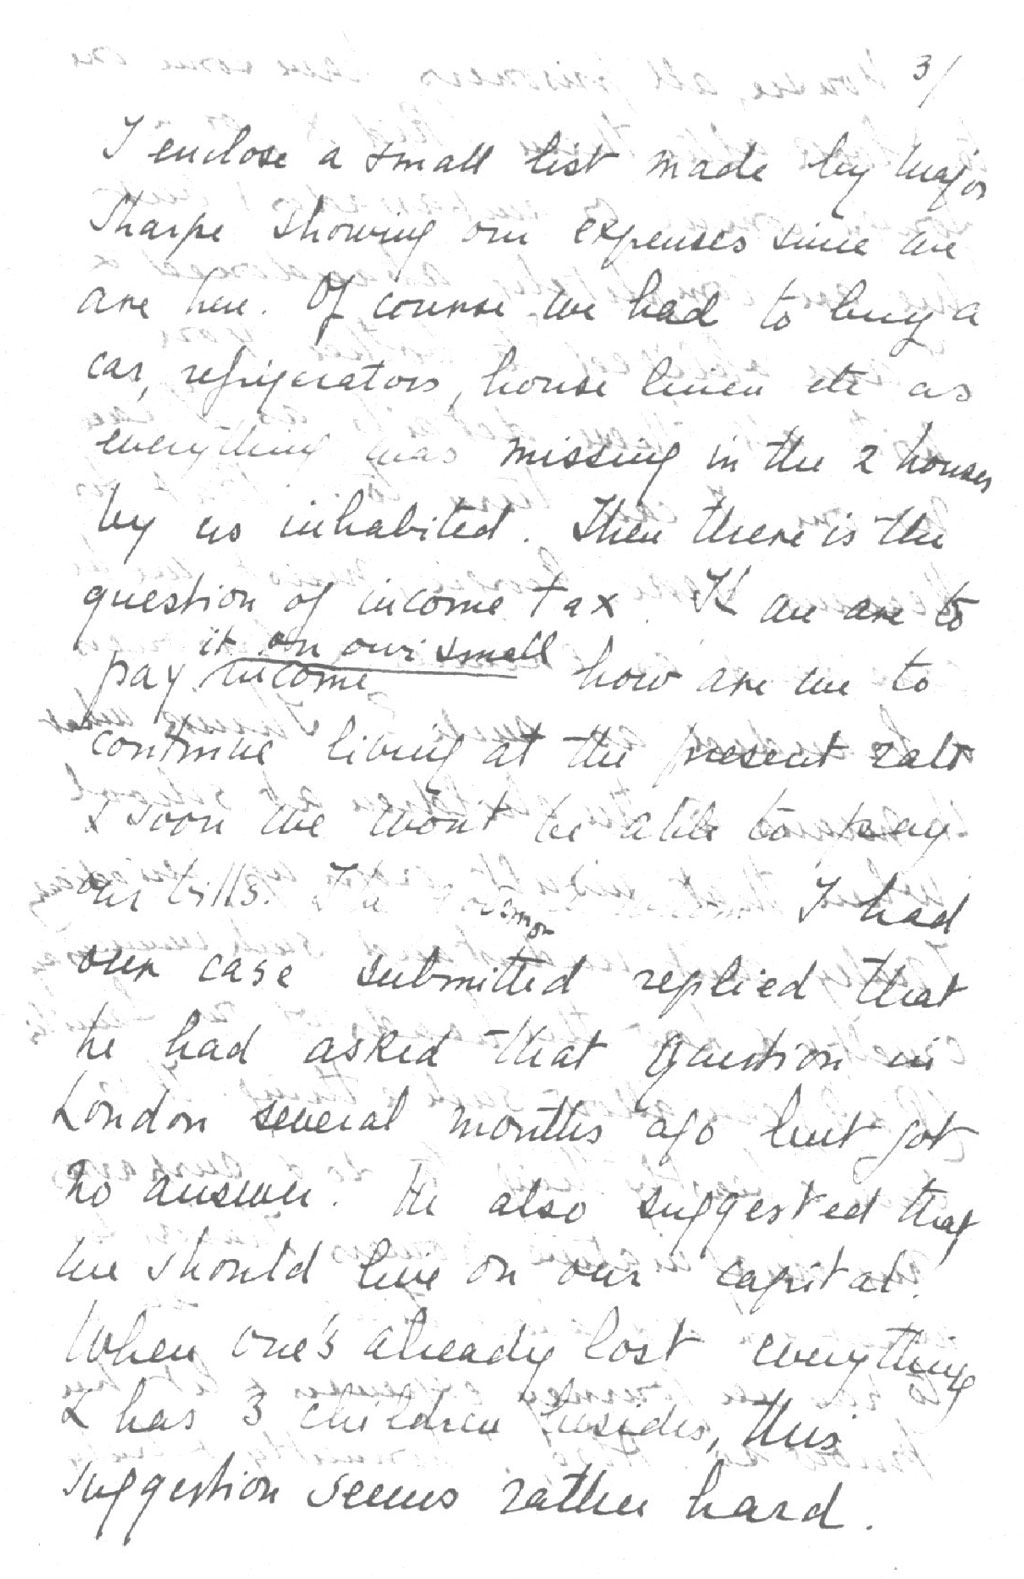 3/
I enclose a small list made by Major
Sharpe showing our expenses since we
are here. Of course we had to buy a
car, refrigerators, house linen etc as
everything was missing in the 2 houses
by us inhabited. Then there is the
question of income tax. If we are to
it on our small
pay income how are we to
continue living at the present rate
& soon we won't be able to pay
our bills. The governor I had
our case submitted replied that
he had asked that question in
London several months ago but got
no answer. He also suggested that
we should live on our capital.
When one's already lost everything
& has 3 children besides, this
suggestion seems rather hard.